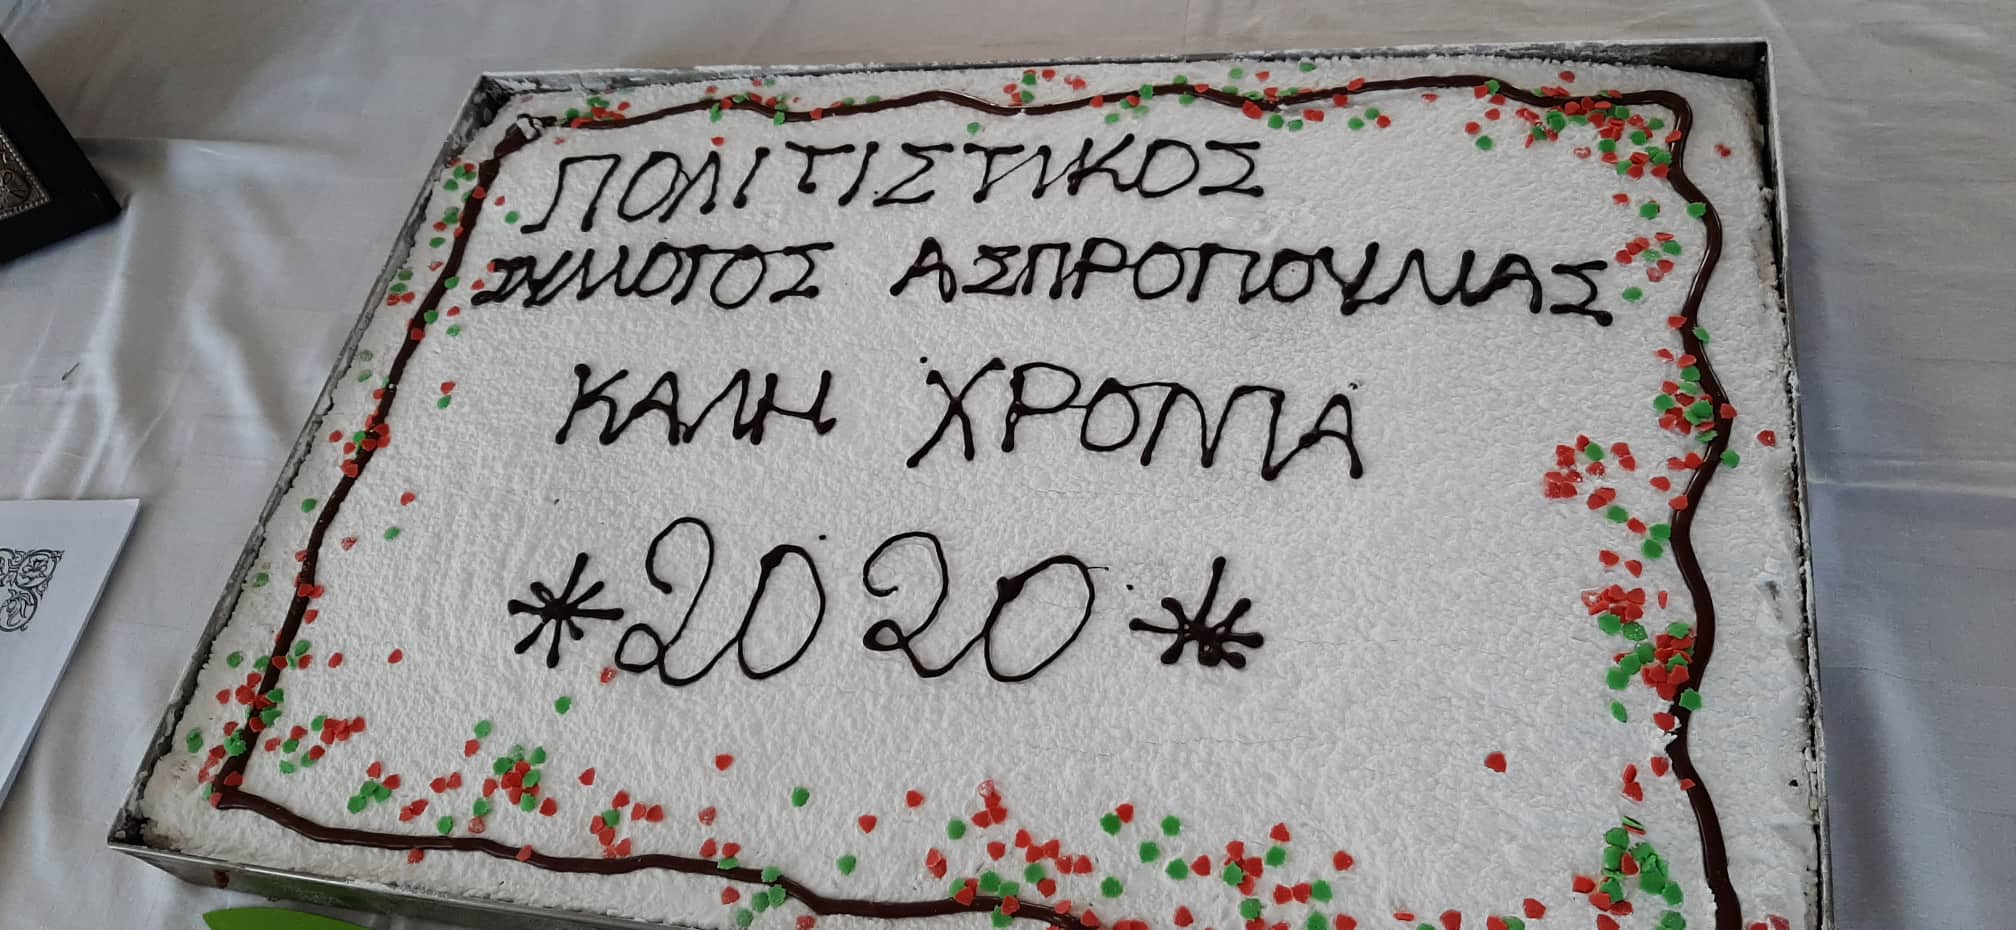 ΠΟΛΙΤΙΣΤΙΚΟΣ
ΣΥΛΛΟΓΟΣ ΑΣΠΡΟΠΟΥΛΙΑΣ
ΚΑΛΗ ΧΡΟΝΙΑ
* 2020 *